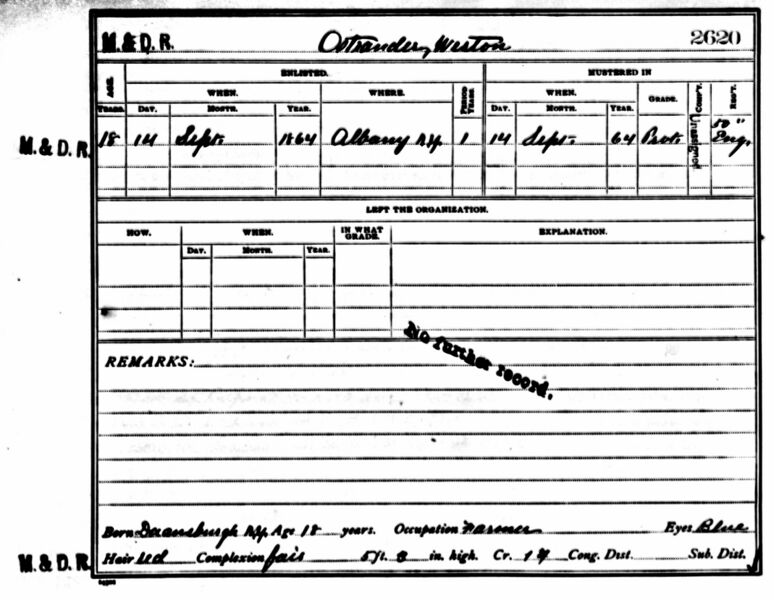 M. & D. R. Ostrander, Weston 2620
ENLISTED. MUSTERED IN
AGE. WHEN. WHERE. PERIOD WHEN. GRADE. COMP'Y. REG'T.
YEARS. DAY. MONTH. YEAR. YEARS. DAY. MONTH. YEAR.
M. & D. R. 18 14 Sept. 1864 Albany N.Y. 1 14 Sept. 64 Pvt. Unassigned 50" Eng.
LEFT THE ORGANIZATION.
HOW. WHEN. IN WHAT GRADE. EXPLANATION.
DAY. MONTH. YEAR.
No further record.
REMARKS:
Born Duanesburgh N.Y. Age 18 years. Occupation Farmer Eyes Blue
M. & D. R. Hair red Complexion fair 5 ft. 8 in. high. Cr. Cong. Dist. Sub. Dist.